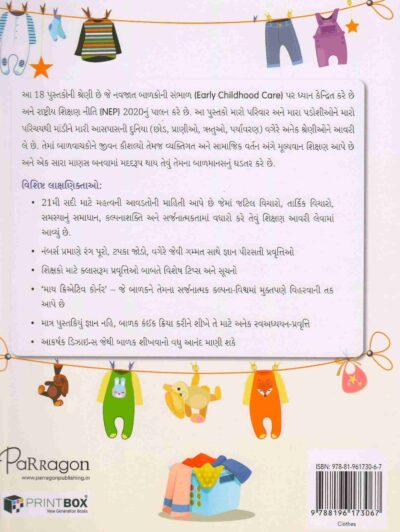 આ 18 પુસ્તકોની શ્રેણી છે જે નવજાત બાળકોની સંભાળ (Early Childhood Care) પર ધ્યાન કેન્દ્રિત કરે છે
અને રાષ્ટ્રીય શિક્ષણ નીતિ (NEP) 2020નું પાલન કરે છે. આ પુસ્તકો મારો પરિવાર અને મારા પડોશીઓને મારો
પરિચયથી માંડીને મારી આસપાસની દુનિયા (છોડ, પ્રાણીઓ, ઋતુઓ, પર્યાવરણ) વગેરે અનેક શ્રેણીઓને આવરી
લે છે. તેમાં બાળવાચકોને જીવન કૌશલ્યો તેમજ વ્યક્તિગત અને સામાજિક વર્તન અંગે મૂલ્યવાન શિક્ષણ આપે છે
અને એક સારા માણસ બનવામાં મદદરૂપ થાય તેવું તેમના બાળમાનસનું ઘડતર કરે છે.
વિશિષ્ટ લાક્ષણિકતાઓ:
• 21મી સદી માટે મહત્વની આવડતોની માહિતી આપે છે જેમાં જટિલ વિચારો, તાર્કિક વિચારો,
સમસ્યાનું સમાધાન, કલ્પનાશક્તિ અને સર્જનાત્મકતામાં વધારો કરે તેવું શિક્ષણ આવરી લેવામાં
આવ્યું છે.
• નંબર્સ પ્રમાણે રંગ પૂરો, ટપકા જોડો, વગેરે જેવી ગમ્મત સાથે જ્ઞાન પીરસતી પ્રવૃત્તિઓ
• શિક્ષકો માટે ક્લાસરૂમ પ્રવૃત્તિઓ બાબતે વિશેષ ટિપ્સ અને સૂચનો
• ‘માય ક્રિએટિવ કોર્નર’ – જે બાળકને તેમના સર્જનાત્મક કલ્પના-વિશ્વમાં મુક્તપણે વિહરવાની તક
આપે છે
• માત્ર પુસ્તકિયું જ્ઞાન નહિ, બાળક કંઈક ક્રિયા કરીને શીખે તે માટે અનેક સ્વઅધ્યયન-પ્રવૃત્તિ
• આકર્ષક ડિઝાઇન્સ જેથી બાળક શીખવાનો વધુ આનંદ માણી શકે
PaRragon
www.parragonpublishing.in
PRINTBOX
New Generation Books
ISBN: 978-81-961730-6-7
9 788196 173067
Clothes